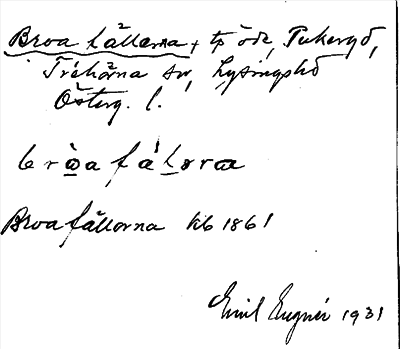 Broa fällorna, tp öde, Pukeryd,
Tréhörna sn, Lysingshd
Österg. l.
bròafál̲ora
Broafällorna kb 1861
Emil Eugnér 1931